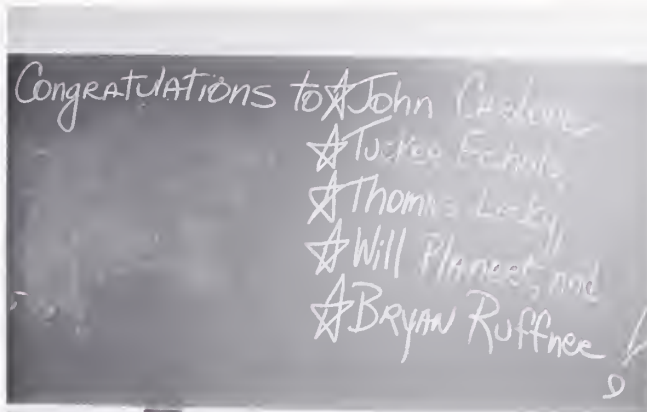 Congratulations to ☆ John
☆ Tucker Echols,
☆ Thomas Lecky,
☆ Will Planest, and
☆ Bryan Ruffner!